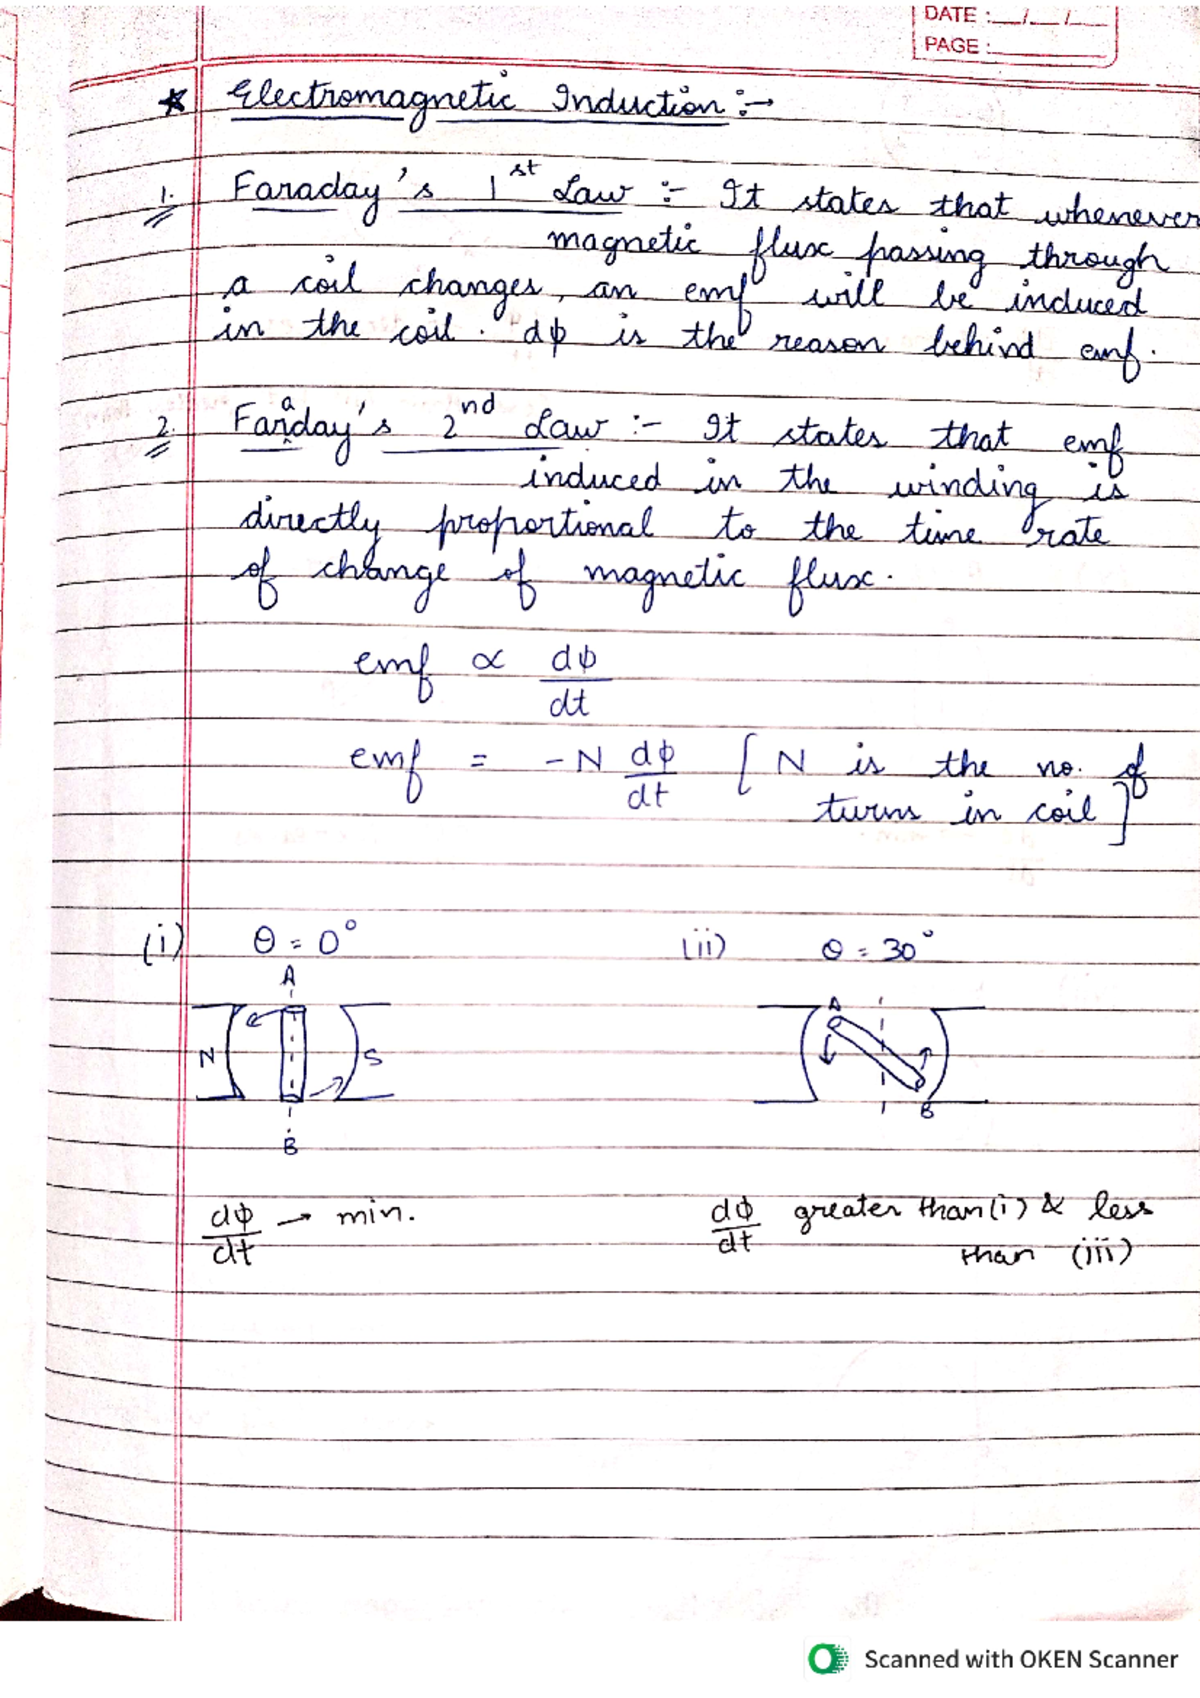 DATE :__/__/__
PAGE :______
* Electromagnetic Induction :→
1. Faraday's 1st Law :- It states that whenever
magnetic flux passing through
a coil changes, an emf will be induced
in the coil. dϕ is the reason behind emf.
2. Faraday's 2nd Law :- It states that emf
induced in the winding is
directly proportional to the time rate
of change of magnetic flux.
emf ∝ dϕ/dt
emf = -N dϕ/dt [ N is the no. of
turns in coil ]
(i) θ = 0° (ii) θ = 30°
A
A
N S
B
B
dϕ/dt → min. dϕ/dt greater than (i) & less
than (iii)
Scanned with OKEN Scanner